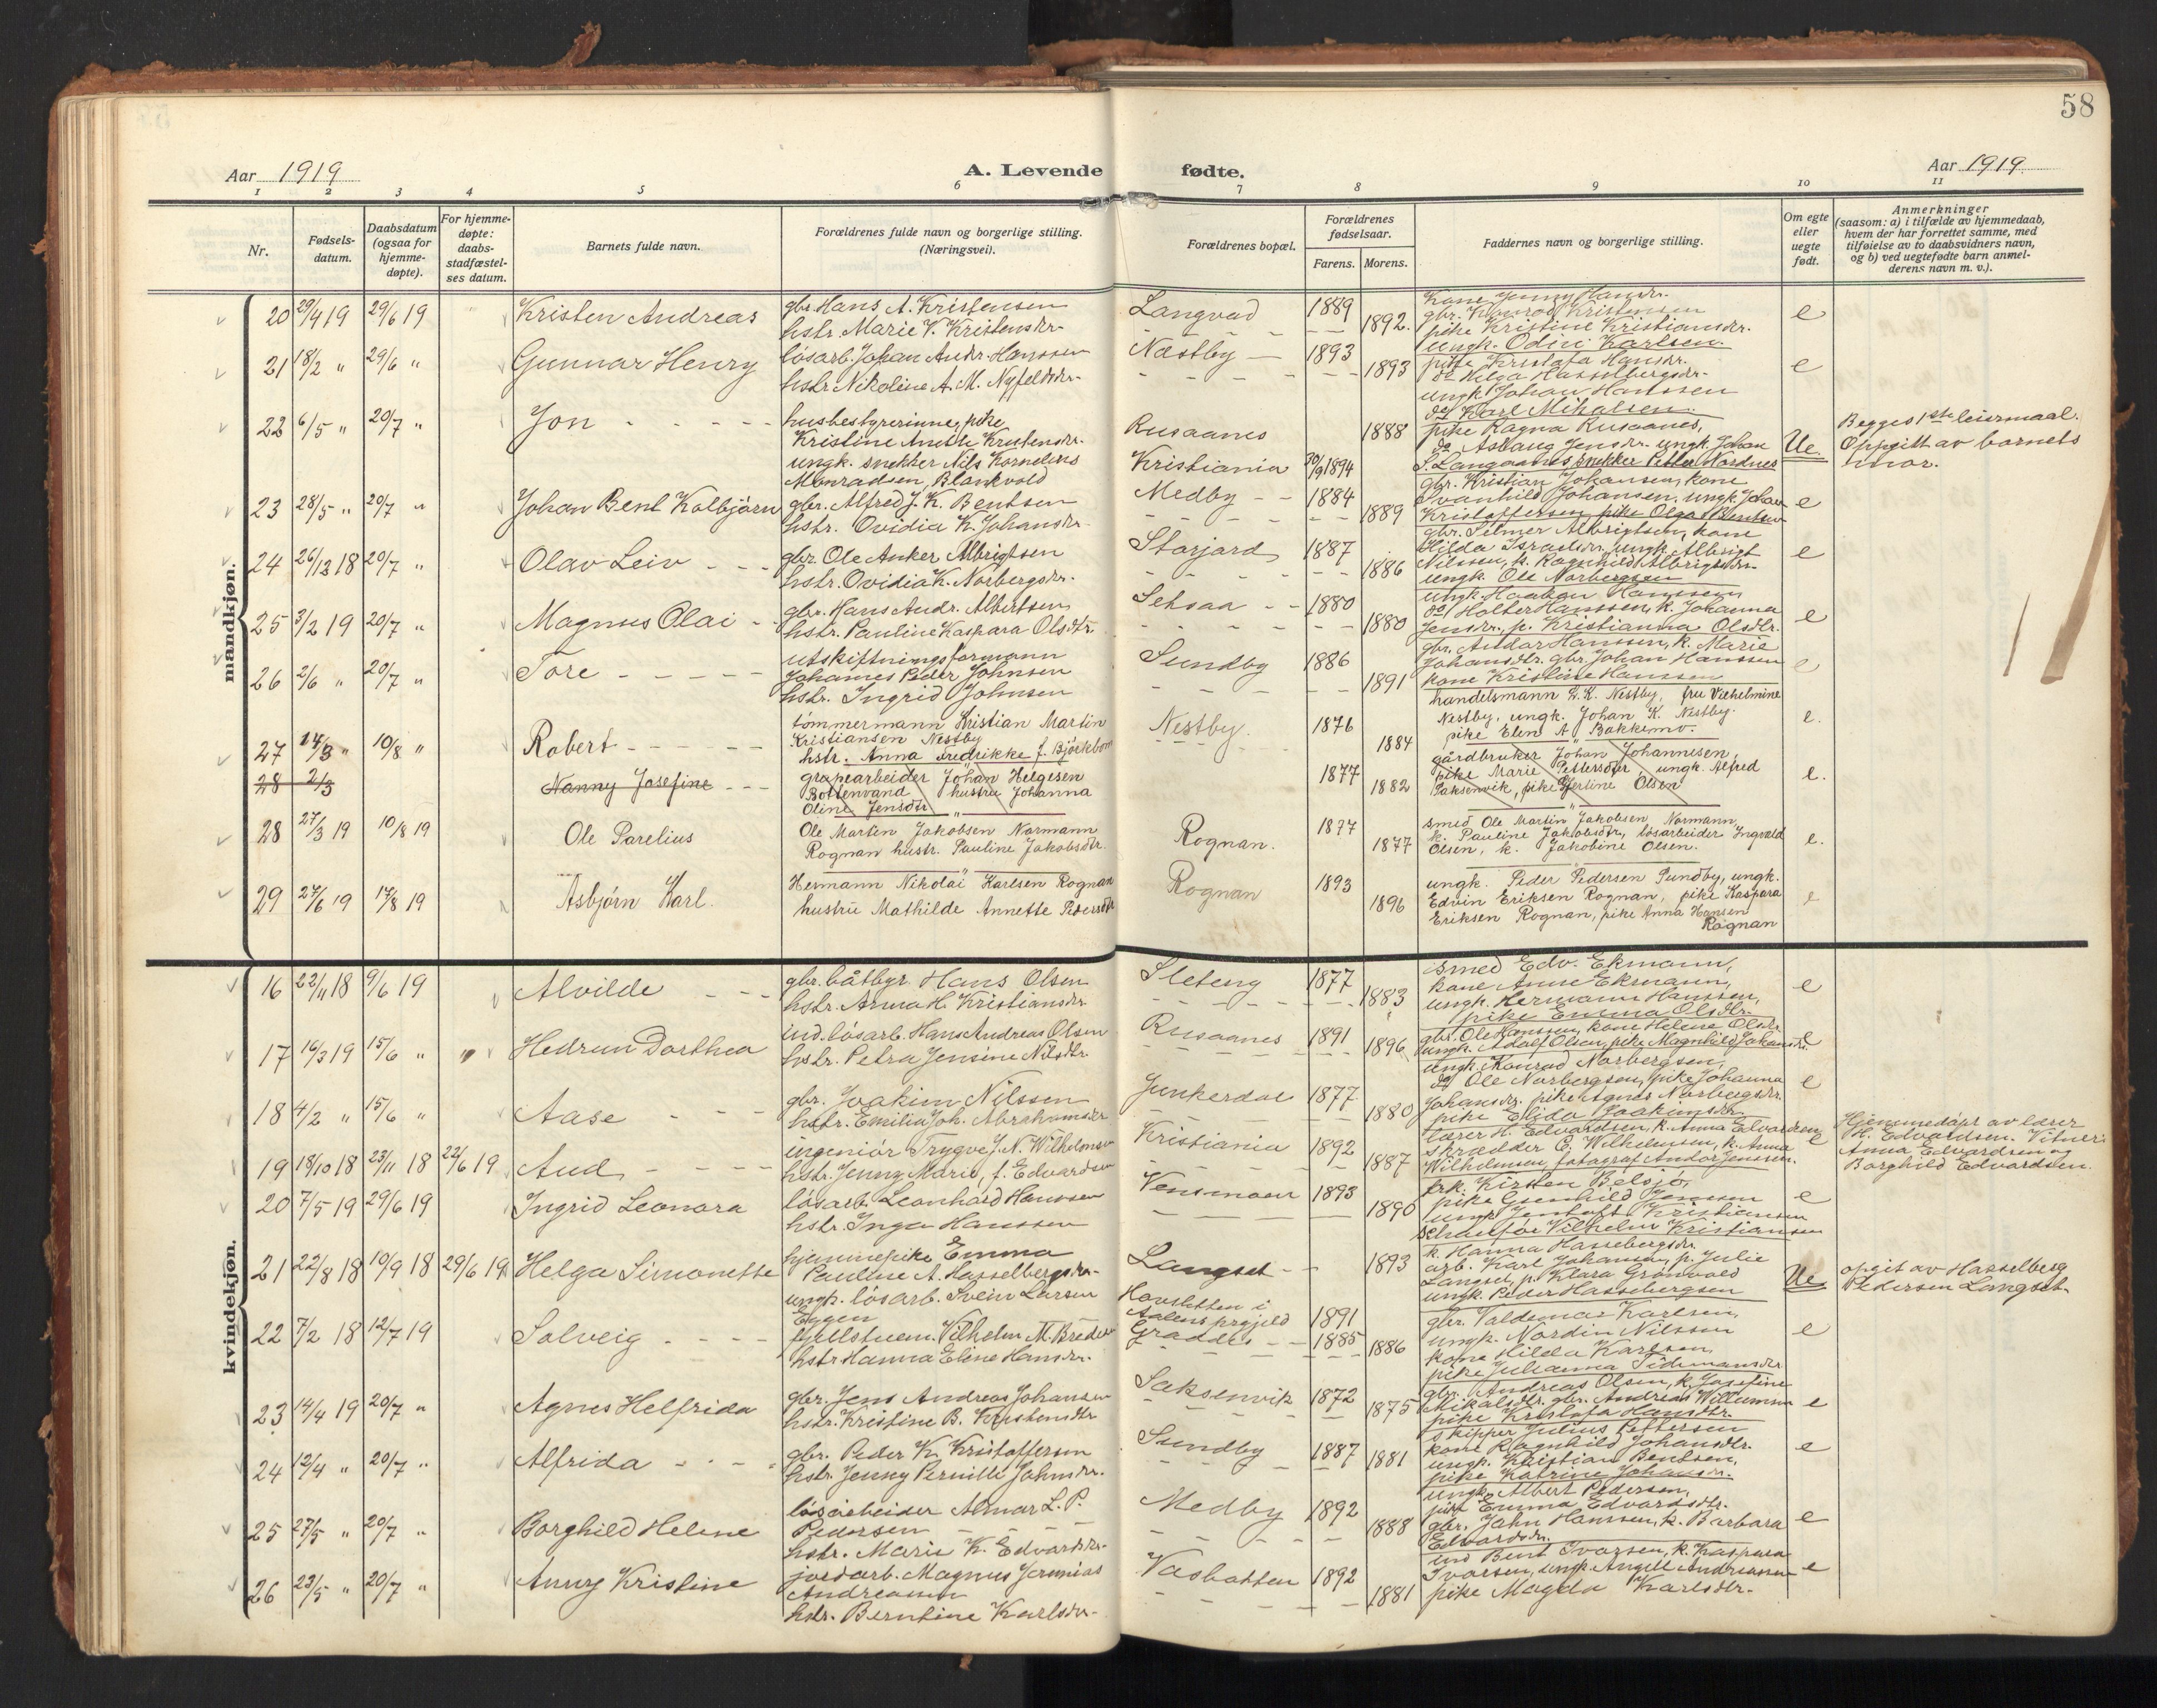 58
Aar 1919
A. Levende fødte.
Aar 1919
1 2 3 4 5 6 7 8 9 10 11
Nr.
Fødsels-
datum.
Daabsdatum
(ogsaa for
hjemme-
døpte).
For hjemme-
døpte:
daabs-
stadfæstel-
ses datum.
Barnets fulde navn.
Forældrenes fulde navn og borgerlige stilling.
(Næringsvei).
Forældrenes bopæl.
Forældrenes
fødselsaar.
Farens. Morens.
Faddernes navn og borgerlige stilling.
Om egte
eller
uegte
født.
Anmerkninger
(saasom: a) i tilfælde av hjemmedaab,
hvem der har forrettet samme, med
tilføielse av to daabsvidners navn,
og b) ved uegtefødte barn anmel-
derens navn m. v.).
mandkjøn.
20 29/4 19 29/6 19 Kristen Andreas
gbr. Hans A. Kristensen
hstr. Marie V. Kristensdr.
Langvad 1889 1892.
Kone Jenny Hansdr.
gbr. Konrad Kristensen
pike Kristine Kristiansdr.
ungk. Odin Karlsen.
e
21 18/2 " 29/6 " Gunnar Henry
løsarb. Johan Andr. Hanssen
hstr. Nikoline A. M. Nyfeldsdr.
Næstby 1893 1893
pike Kristofa Hansdr.
do Helga Hasselbergsdr.
ungk. Johan Hanssen
do Karl Mikalsen.
e
22 6/5 " 20/7 " Jon
husbestyrerinne, pike
Kristine Anette Kristensdr.
ungk. snekker Nils Kornelius
Monradsen, Blankvold
Rusaanes 1888
Kristiania 30/9 1894
pike Ragna Rusaanes,
do Aslaug Jensdr. ungk. Johan
S. Langaanes snekker Petter Nordnes
Ue.
Begges 1ste leiermaal.
Oppgitt av barnets
mor.
23 28/5 " 20/7 " Johan Bent Kolbjørn
gbr. Alfred J. K. Bentsen
hstr. Ovidia K. Johansdr.
Medby 1884 1889
gbr. Kristian Johansen, kone
Svanhild Johansen, ungk. Johan
Kristoffersen, pike Olga Bentsen
e
24 26/12 18 20/7 " Olav Leiv
gbr. Ole Anker Albrigtsen
hstr. Ovidia K. Norbergsdr.
Storjord 1887 1886
gbr. Selmer Albrigtsen, kone
Hilda Israelsdr. ungk. Albrigt
Nilssen, k. Ragnhild Albrigtsdr.
ungk. Ole Norbergsen
e
25 3/2 19 20/7 " Magnus Olai
gbr. Hans Andr. Albertsen
hstr. Pauline Kaspara Olsdtr.
Setsaa 1880 1880
ungk. Haakon Hanssen,
do Holter Hanssen, k. Johanna
Jensdr. p. Kristianna Olsdtr.
e
26 2/6 " 20/7 " Tore
utskiftningsformann
Johannes Peder Johnsen
hstr. Ingrid Johnsen
Sundby 1886 1891
gbr. Andor Hanssen, k. Marie
Johansdtr. gbr. Johan Hanssen
kone Kristine Hanssen
e
27 14/3 " 10/8 " Robert
tømmermann Kristian Martin
Kristiansen Nestby
hstr. Anna Fredrikke f. Bjørkebom
Nestby. 1876 1884
handelsmann K. K. Nestby, fru Vilhelmine
Nestby, ungk. Johan K. Nestby.
pike Elen A. Bakkemo.
e.
28 2/3 Nanny Josefine
grapearbeider Johan Helgesen
Bottenvand hustru Johanna
Oline Jensdtr
1877 1882
gårdbruker Johan Johannesen,
pike Marie Pettersdtr, ungk. Alfred
Saksenvik, pike Hertine Olsen
e.
28 27/3 19 10/8 19 Ole Parelius
Ole Martin Jakobsen Normann
Rognan hustr. Pauline Jakobsdtr.
Rognan. 1877 1877
smed Ole Martin Jakobsen Normann,
k. Pauline Jakobsdtr, løsarbeider Ingvald
Olsen, k. Jakobine Olsen.
e.
29 27/6 19 17/8 19 Asbjørn Karl.
Hermann Nikolai Karlsen Rognan
hustru Mathilde Annette Pedersdtr
Rognan 1893 1896
ungk. Peder Pedersen Sundby, ungk.
Edvin Eriksen Rognan, pike Kaspara
Eriksen Rognan, pike Anna Hansen
Rognan
e
kvindekjøn.
16 22/11 18 9/6 19 Alvilde
gbr. båtbyr Hans Olsen
hstr. Anna H. Kristiansdr.
Sleteng 1877 1883
smed Edv. Ekmann,
kone Anne Ekmann,
ungk. Hermann Hanssen,
pike Emma Olsdtr.
e
17 16/3 19 15/6 " Hedrun Dorthea
ind. løsarb. Hans Andreas Olsen
hstr. Petra Jensine Nilsdtr.
Rusaanes 1891 1896
gbr. Ole Hanssen, kone Helene Olsdr.
ungk. Adolf Olsen, pike Magnhild Johansdr.
e
18 4/2 " 15/6 " Aase
gbr. Joakim Nilssen
hstr. Emilia Joh. Abrahamsdr
Junkerdal 1877 1880
ungk. Konrad Norbergsen,
do Ole Norbergsen, pike Johanna
Johansdr. pike Agnes Norbergsdr.
pike Elida Joakimsdr.
e
19 18/10 18 23/11 18 22/6 19 Aud
ingeniør Trygve J. N. Wilhelmsen
hstr. Jenny Marie, f. Edvardsen
Kristiania 1892 1887
lærer H. Edvardsen, k. Anna Edvardsen,
skrædder C. Wilhelmsen, k. Anna
Wilhelmsen, fotograf Andor Jenssen.
frk. Kirsten Belsjø,
e
Hjemmedøpt av lærer
H. Edvardsen. Vitner:
Anna Edvardsen og
Borghild Edvardsen.
20 7/5 19 29/6 19 Ingrid Leonora
løsarb. Leonhard Hanssen
hstr. Inga Hanssen
Vensmoen 1893 1890
pike Gunhild Jenssen
ungk. Jentoft Kristiansen
Vilhelm Kristiansen
e
21 22/8 18 19/9 18 29/6 19 Helga Simonette
hjemmepike Emma
Pauline A. Hasselbergsdr.
ungk. løsarb. Svein Larsen
Eggen
Langset 1893
Havsletten i
Aalens prgjeld 1891
k. Hanna Hassebergsdr.
arb. Karl Johansen, p. Julie
Langset, p. Klara Grønvold
ungk. Peder Hassebergsen
Ue.
opgit av Hasselberg
Pedersen Langset.
22 7/2 18 12/7 19 Solveig
fjellstuem. Vilhelm M. Bredesen
hstr. Hanna Eline Hansdr.
Graddis 1885 1886
gbr. Valdemar Karlsen,
ungk. Nordin Nilssen
kone Hilda Karlsen,
pike Julianna Tidemansdr
e
23 14/4 19 20/7 " Agnes Helfrida
gbr. Jens Andreas Johansen
hstr. Kristine B. Kristensdtr
Saksenvik 1872 1875
gbr. Andreas Olsen, k. Josefine
Mikalsdtr. gbr. Andreas Willumsen
pike Kristofa Hansdtr.
e
24 12/4 " 20/7 " Alfrida
gbr. Peder K. Kristoffersen
hstr. Jenny Pernille Johnsdr.
Sundby 1887 1881
skipper Julius Pettersen
kone Ragnhild Johansdtr.
ungk. Kristian Bentsen,
pike Katrine Johansdr.
e
25 27/5 " 20/7 " Borghild Helene
løsarbeider Almar L. P.
Pedersen
hstr. Marie K. Edvardsdr.
Medby 1892 1888
ungk. Albert Pedersen,
pike Emma Edvardsdtr.
gbr. John Hanssen, k. Barbara
Edvardsdr.
e
26 23/5 " 20/7 " Anny Kristine
jordarb. Magnus Jeremias
Andreassen
hstr. Berntine Karlsdr.
Vasbotten 1892 1881
ind. Bent Ivarsen, k. Kaspara
Ivarsen, ungk. Angell Andreassen
pike Magda Karlsdtr.
e